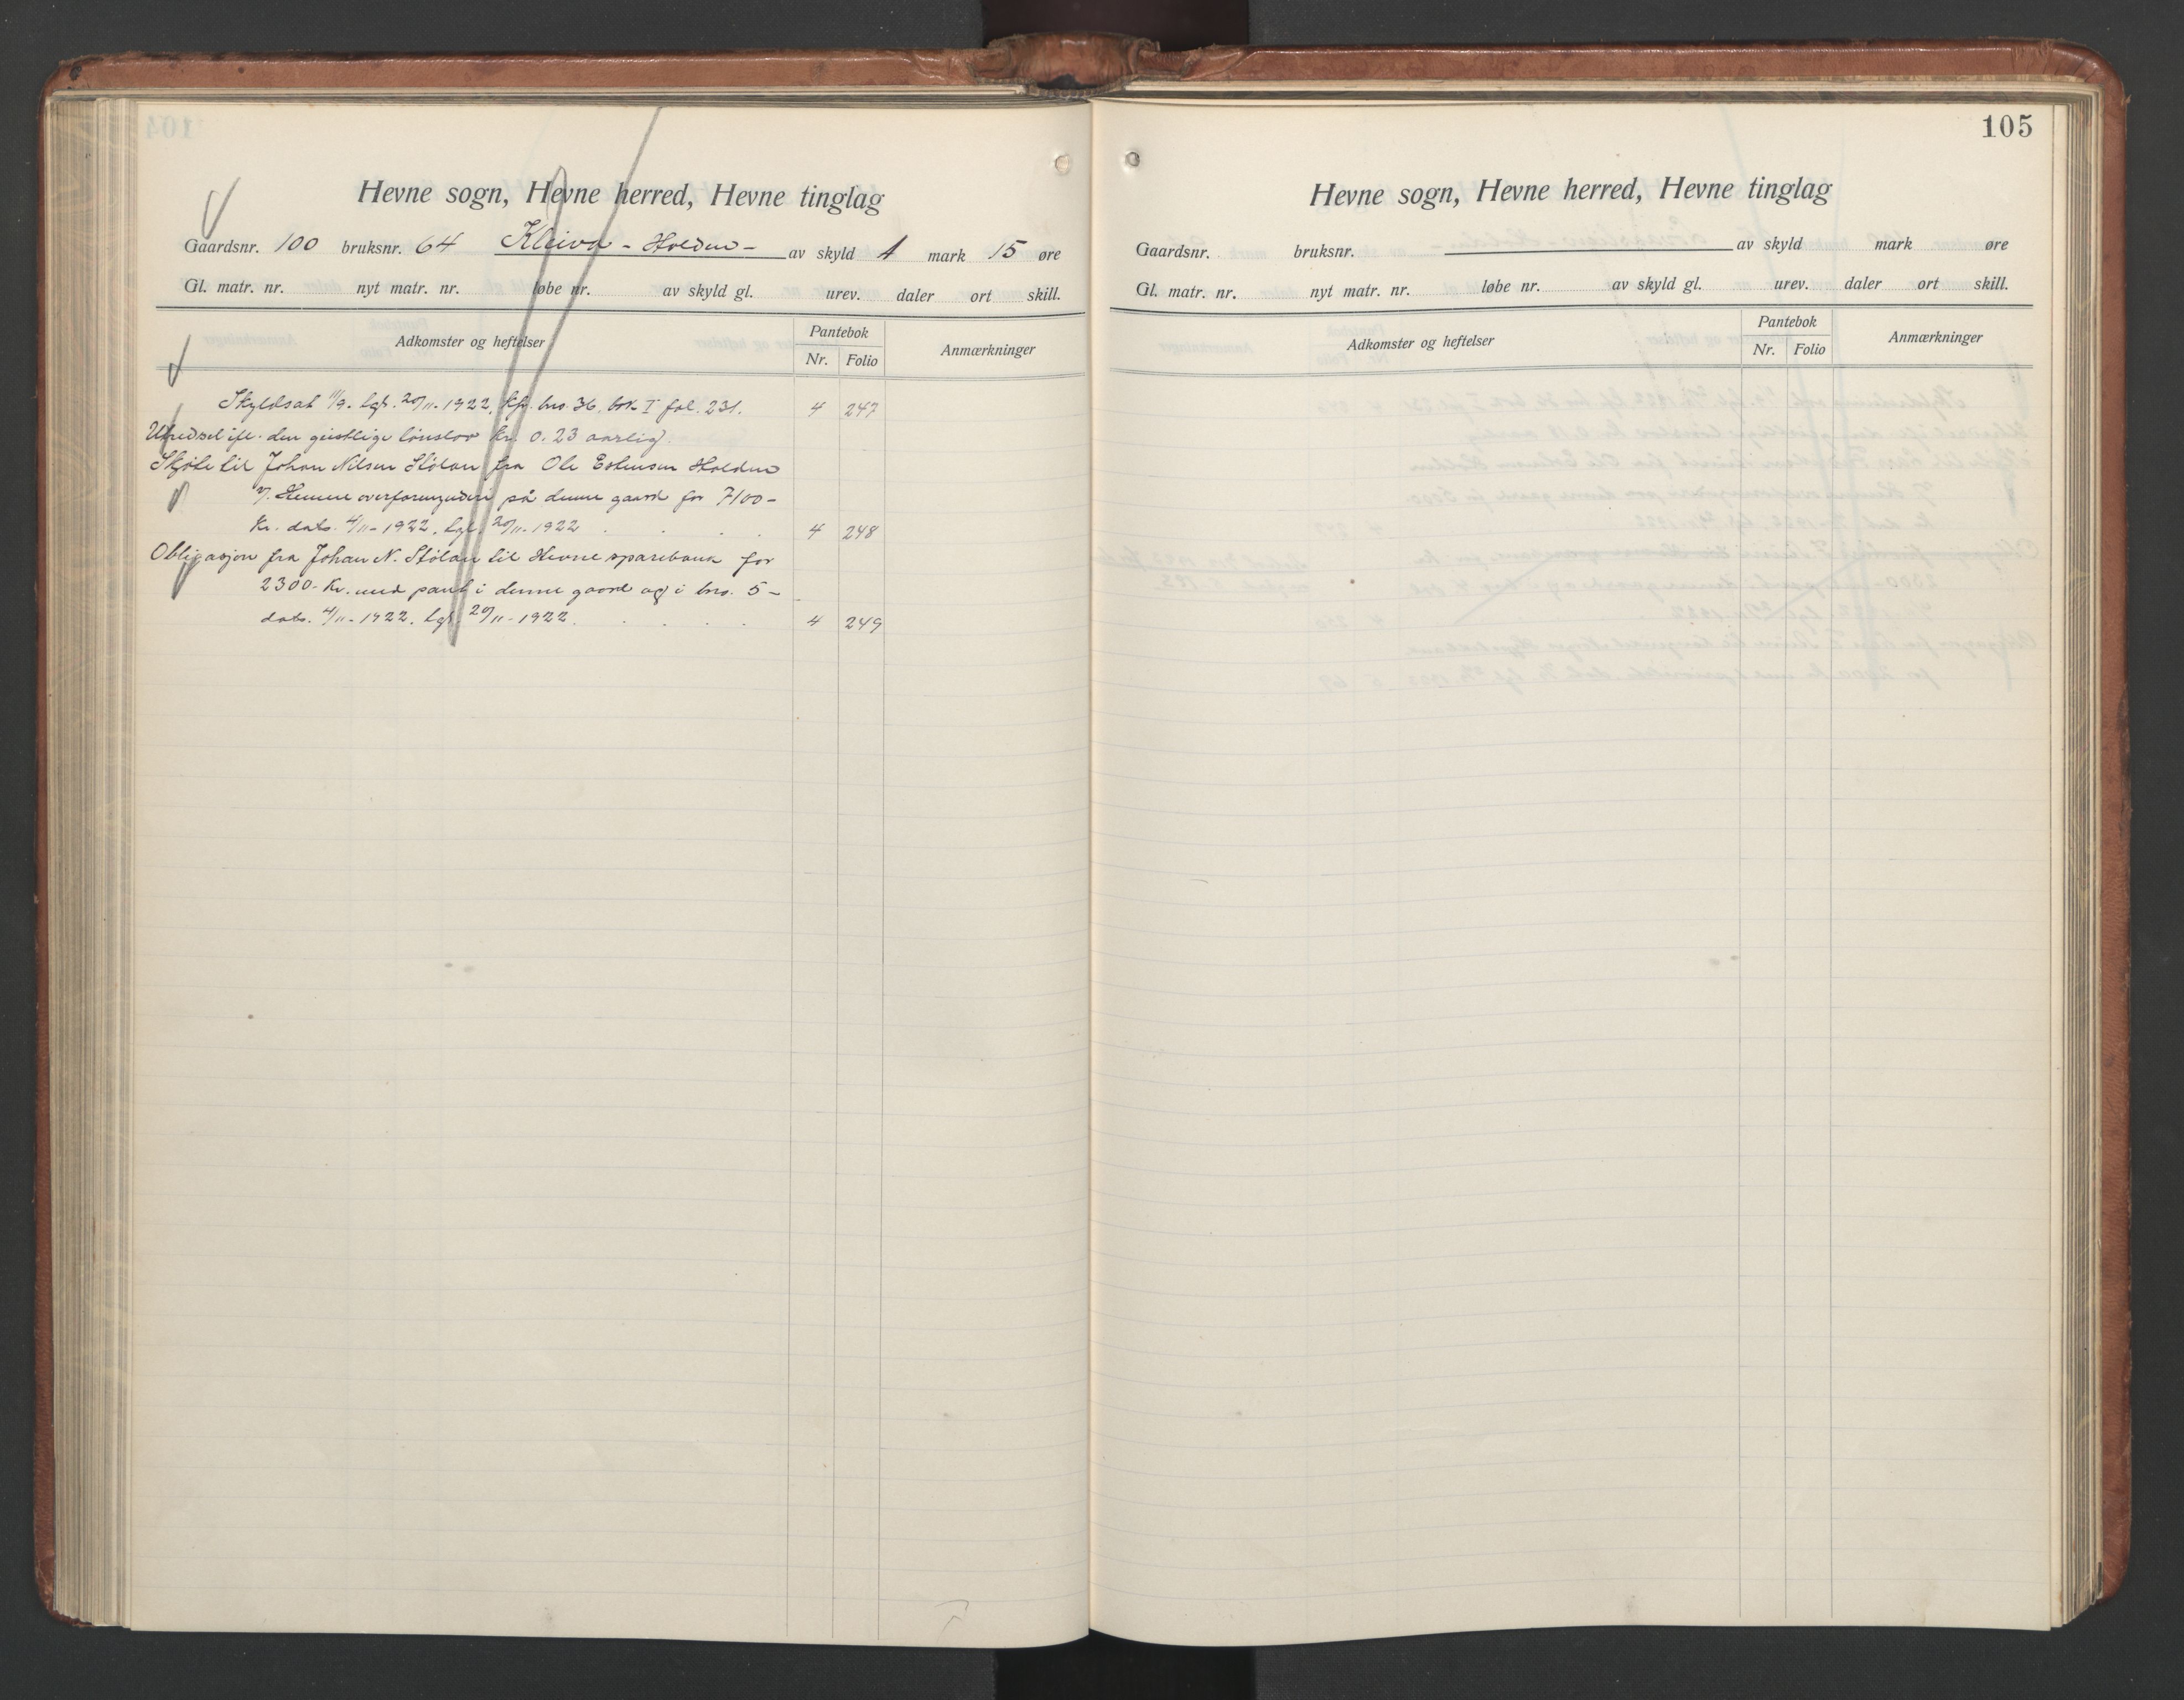 Hevne sogn, Hevne herred, Hevne tinglag
Gaardsnr. 100 bruksnr. 64 Kleiva - Holden - av skyld 1 mark 15 øre
Gl. matr. nr. nyt matr. nr. løbe nr. av skyld gl. urev. daler ort skill.
Adkomster og heftelser Pantebok Nr. Folio Anmærkninger
Skyldsat 11/9. tgl. 20/11. 1922, kfr. bno. 36, bok I fol. 231. 4 247
Utredsel ifl. den geistlige lønslov kr. 0.23 aarlig.
Skjøte til Johan Nilsen Stølan fra Ole Estensen Holden
v/ Hemne overformynderi på denne gaard for 7100-
kr. dat. 4/11-1922, tgl. 20/11-1922 4 248
Obligasjon fra Johan N. Stølan til Hevne sparebank for
2300- kr. med pant i denne gaard og i bno. 5-
dat. 4/11-1922. tgl. 20/11-1922. 4 249
105
Hevne sogn, Hevne herred, Hevne tinglag
Gaardsnr. bruksnr. av skyld mark øre
Gl. matr. nr. nyt matr. nr. løbe nr. av skyld gl. urev. daler ort skill.
Adkomster og heftelser Pantebok Nr. Folio Anmærkninger